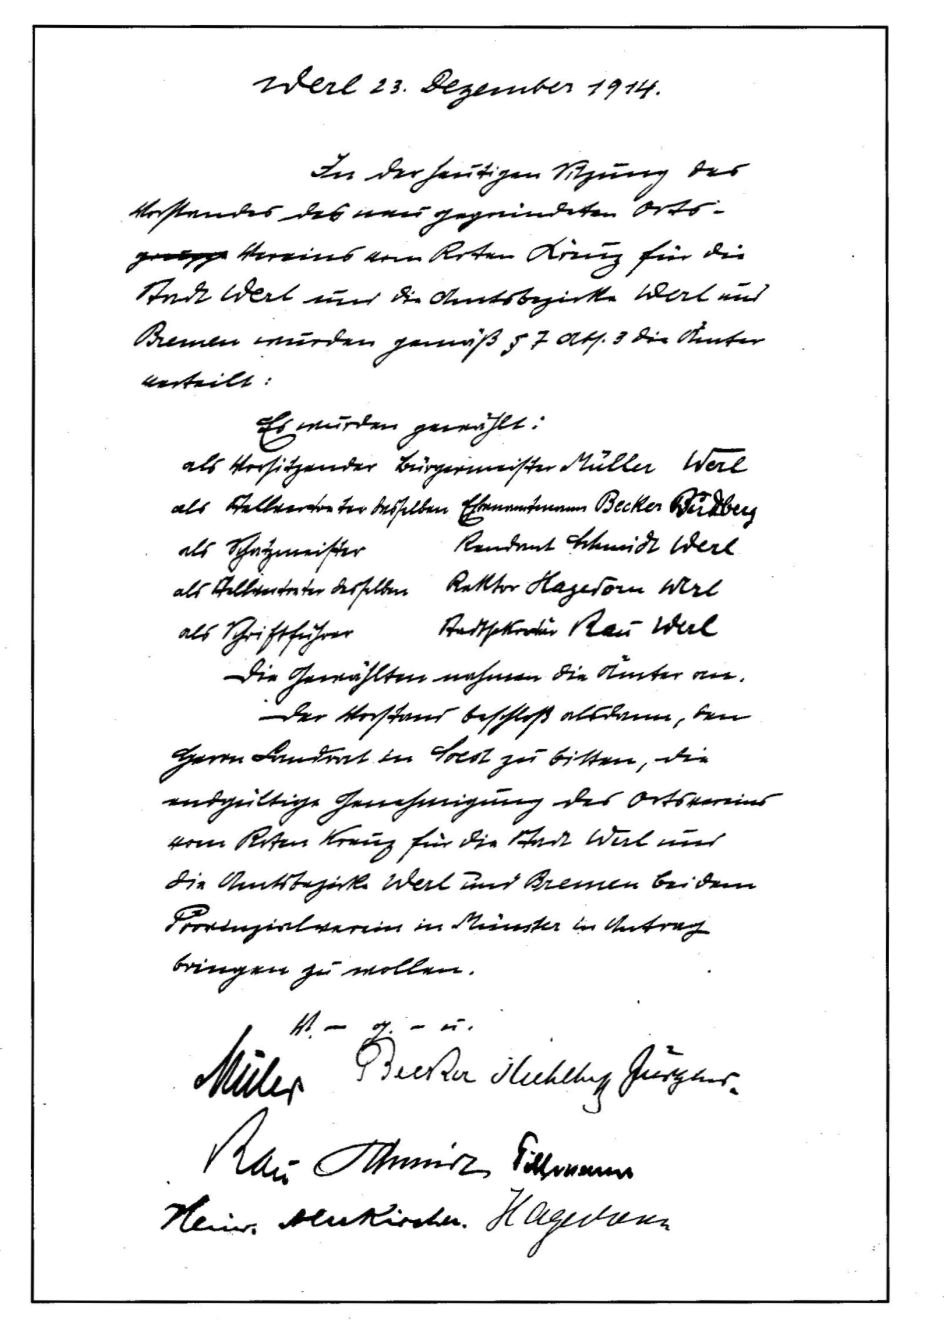 Werl 23. Dezember 1914.
In der heutigen Sitzung des
Vorstandes des neu gegründeten Orts-
gruppe Vereins vom Roten Kreuz für die
Stadt Werl und die Amtsbezirke Werl und
Bremen wurden gemäß § 7 Abs. 3 die Ämter
verteilt:
Es wurden gewählt:
als Vorsitzender Bürgermeister Müller Werl
als Stellvertreter desselben Becker Büdberg
als Schatzmeister Rendant Schmidt Werl
als Stellvertreter desselben Rektor Hagedorn Werl
als Schriftführer Stadtsekretär Rau Werl
Die Gewählten nahmen die Ämter an.
Der Vorstand beschloß alsdann, den
Herrn Landrat in Soest zu bitten, die
endgültige Genehmigung des Ortsvereins
vom Roten Kreuz für die Stadt Werl und
die Amtsbezirke Werl und Bremen bei dem
Provinzialverein in Münster in Antrag
bringen zu wollen.
V. – g. – u.
Müller Becker
Rau Schmidt
Heinr. Hagedorn